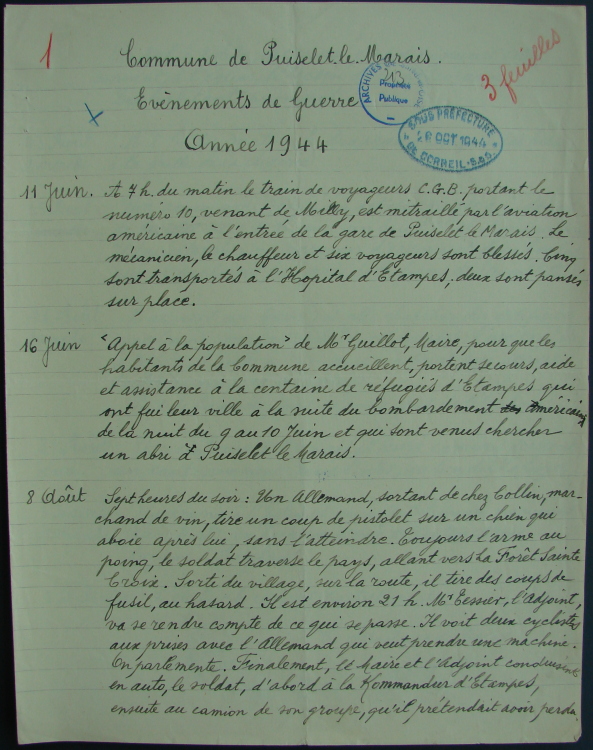 1
Commune de Puiselet-le-Marais.
3 feuilles
ARCHIVES
213
Propriété
Publique
Evènements de Guerre
SOUS PRÉFECTURE
OCT 1944
DE CORBEIL · S&O
Année 1944
11 Juin. A 7h. du matin le train de voyageurs C.G.B. portant le
numéro 10, venant de Milly, est mitraillé par l'aviation
américaine à l'entrée de la gare de Puiselet le Marais. Le
mécanicien, le chauffeur et six voyageurs sont blessés. Cinq
sont transportés à l'Hopital d'Etampes, deux sont pansés
sur place.
16 Juin "Appel à la population" de Mr Guillot, Maire, pour que les
habitants de la Commune accueillent, portent secours, aide
et assistance à la centaine de réfugiés d'Etampes qui
ont fui leur ville à la suite du bombardement américain
de la nuit du 9 au 10 Juin et qui sont venus chercher
un abri à Puiselet le Marais.
8 Août Sept heures du soir : Un Allemand, sortant de chez Collin, mar-
chand de vin, tire un coup de pistolet sur un chien qui
aboie après lui, sans l'atteindre. Toujours l'arme au
poing, le soldat traverse le pays, allant vers La Forêt Sainte
Croix. Sorti du village, sur la route, il tire des coups de
fusil, au hasard. Il est environ 21 h. Mr Tessier, l'Adjoint,
va se rendre compte de ce qui se passe. Il voit deux cyclistes
aux prises avec l'Allemand qui veut prendre une machine.
On parlemente. Finalement, le Maire et l'Adjoint conduisent
en auto, le soldat, d'abord à la Kommandur d'Etampes,
ensuite au camion de son groupe, qu'il prétendait avoir perdu.